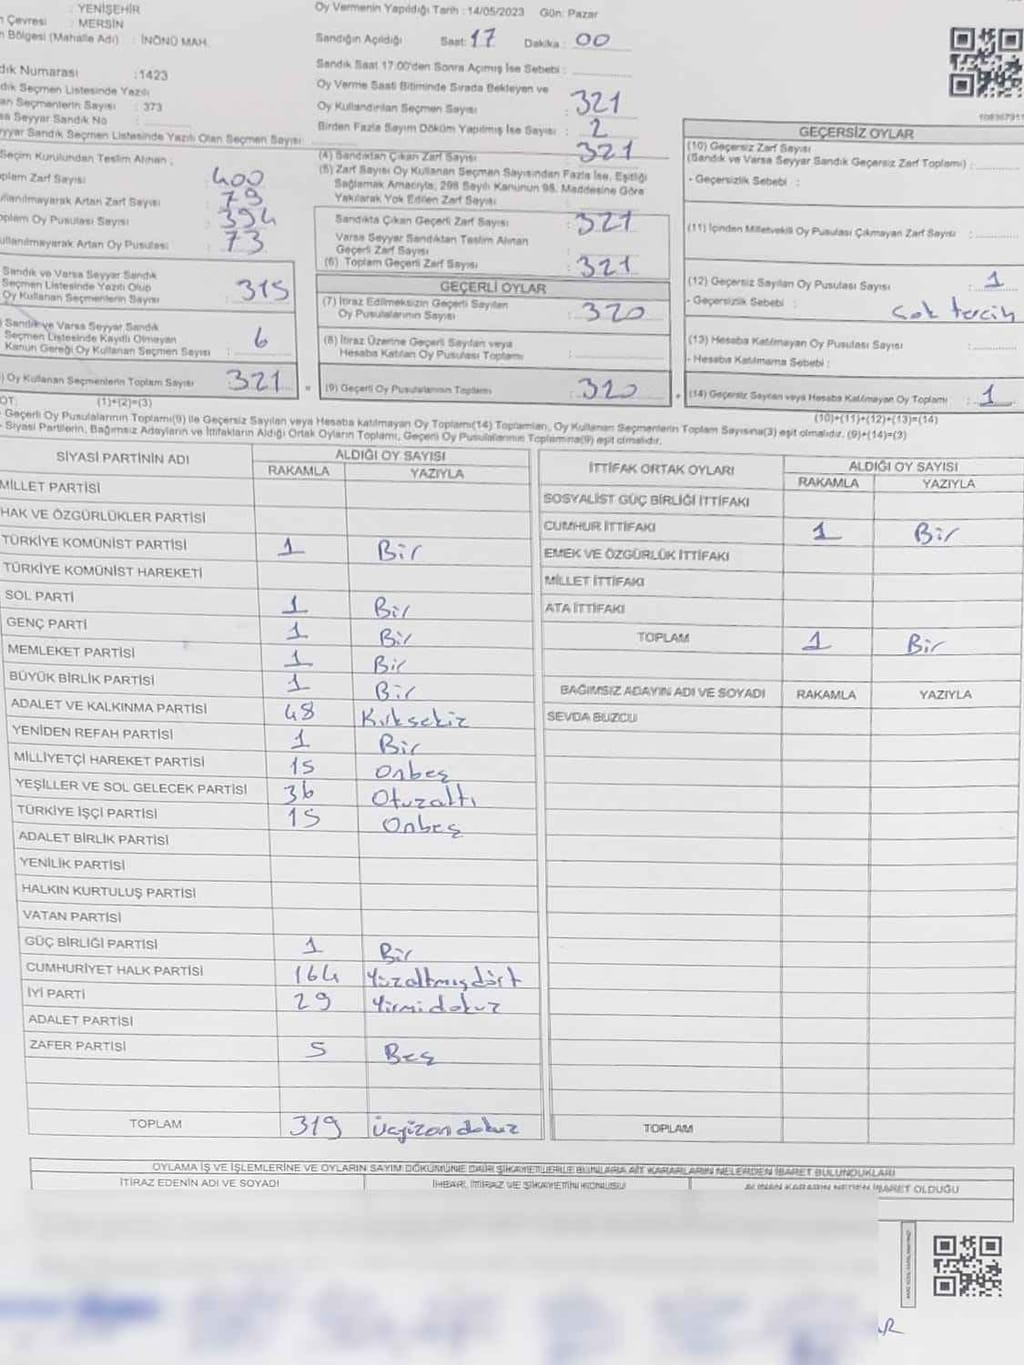 : YENİŞEHİR
Çevresi : MERSİN
Bölgesi (Mahalle Adı) : İNÖNÜ MAH.
Numarası :1423
Seçmen Listesinde Yazılı
Seçmenlerin Sayısı : 373
Seyyar Sandık No :
Sandık Seçmen Listesinde Yazılı Olan Seçmen Sayısı:
Seçim Kurulundan Teslim Alınan ;
Zarf Sayısı : 400
Artan Zarf Sayısı : 79
Oy Pusulası Sayısı : 394
Artan Oy Pusulası : 73
Sandık ve Varsa Seyyar Sandık
Seçmen Listesinde Yazılı Olup
Oy Kullanan Seçmenlerin Sayısı : 315
Sandık ve Varsa Seyyar Sandık
Seçmen Listesinde Kayıtlı Olmayan
Kanun Gereği Oy Kullanan Seçmen Sayısı : 6
Oy Kullanan Seçmenlerin Toplam Sayısı : 321
(1)+(2)=(3)
Oy Vermenin Yapıldığı Tarih : 14/05/2023 Gün: Pazar
Sandığın Açıldığı Saat: 17 Dakika : 00
Sandık Saat 17:00'den Sonra Açımış İse Sebebi :
Oy Verme Saati Bitiminde Sırada Bekleyen ve
Oy Kullandırılan Seçmen Sayısı : 321
Birden Fazla Sayım Döküm Yapılmış İse Sayısı : 2
(4) Sandıktan Çıkan Zarf Sayısı : 321
(5) Zarf Sayısı Oy Kullanan Seçmen Sayısından Fazla İse, Eşitliği
Sağlamak Amacıyla, 298 Sayılı Kanunun 98. Maddesine Göre
Yakılarak Yok Edilen Zarf Sayısı :
Sandıkta Çıkan Geçerli Zarf Sayısı : 321
Varsa Seyyar Sandıktan Teslim Alınan
Geçerli Zarf Sayısı :
(6) Toplam Geçerli Zarf Sayısı : 321
GEÇERLİ OYLAR
(7) İtiraz Edilmeksizin Geçerli Sayılan
Oy Pusulalarının Sayısı : 320
(8) İtiraz Üzerine Geçerli Sayılan veya
Hesaba Katılan Oy Pusulası Toplamı :
(9) Geçerli Oy Pusulalarının Toplamı : 320
GEÇERSİZ OYLAR
(10) Geçersiz Zarf Sayısı
(Sandık ve Varsa Seyyar Sandık Geçersiz Zarf Toplamı) :
- Geçersizlik Sebebi :
(11) İçinden Milletvekili Oy Pusulası Çıkmayan Zarf Sayısı :
(12) Geçersiz Sayılan Oy Pusulası Sayısı : 1
- Geçersizlik Sebebi : Çok tercih
(13) Hesaba Katılmayan Oy Pusulası Sayısı :
- Hesaba Katılmama Sebebi :
(14) Geçersiz Sayılan veya Hesaba Katılmayan Oy Toplamı : 1
(10)+(11)+(12)+(13)=(14)
- Geçerli Oy Pusulalarının Toplamı(9) ile Geçersiz Sayılan veya Hesaba katılmayan Oy Toplamı(14) Toplamları, Oy Kullanan Seçmenlerin Toplam Sayısına(3) eşit olmalıdır. (9)+(14)=(3)
- Siyasi Partilerin, Bağımsız Adayların ve İttifakların Aldığı Ortak Oyların Toplamı, Geçerli Oy Pusulalarının Toplamına(9) eşit olmalıdır.
SİYASİ PARTİNİN ADI ALDIĞI OY SAYISI
RAKAMLA YAZIYLA
MİLLET PARTİSİ
HAK VE ÖZGÜRLÜKLER PARTİSİ
TÜRKİYE KOMÜNİST PARTİSİ 1 Bir
TÜRKİYE KOMÜNİST HAREKETİ
SOL PARTİ 1 Bir
GENÇ PARTİ 1 Bir
MEMLEKET PARTİSİ 1 Bir
BÜYÜK BİRLİK PARTİSİ 1 Bir
ADALET VE KALKINMA PARTİSİ 48 Kırksekiz
YENİDEN REFAH PARTİSİ 1 Bir
MİLLİYETÇİ HAREKET PARTİSİ 15 Onbeş
YEŞİLLER VE SOL GELECEK PARTİSİ 36 Otuzaltı
TÜRKİYE İŞÇİ PARTİSİ 15 Onbeş
ADALET BİRLİK PARTİSİ
YENİLİK PARTİSİ
HALKIN KURTULUŞ PARTİSİ
VATAN PARTİSİ
GÜÇ BİRLİĞİ PARTİSİ 1 Bir
CUMHURİYET HALK PARTİSİ 164 Yüzaltmışdört
İYİ PARTİ 29 Yirmidokuz
ADALET PARTİSİ
ZAFER PARTİSİ 5 Beş
TOPLAM 319 Üçyüzondokuz
İTTİFAK ORTAK OYLARI ALDIĞI OY SAYISI
RAKAMLA YAZIYLA
SOSYALİST GÜÇ BİRLİĞİ İTTİFAKI
CUMHUR İTTİFAKI 1 Bir
EMEK VE ÖZGÜRLÜK İTTİFAKI
MİLLET İTTİFAKI
ATA İTTİFAKI
TOPLAM 1 Bir
BAĞIMSIZ ADAYIN ADI VE SOYADI RAKAMLA YAZIYLA
SEVDA BUZCU
TOPLAM
OYLAMA İŞ VE İŞLEMLERİNE VE OYLARIN SAYIM DÖKÜMÜNE DAİR ŞİKAYETLERLE BUNLARA AİT KARARLARIN NELERDEN İBARET BULUNDUKLARI
İTİRAZ EDENİN ADI VE SOYADI İHBAR, İTİRAZ VE ŞİKAYETİN KONUSU ALINAN KARARIN NEDEN İBARET OLDUĞU